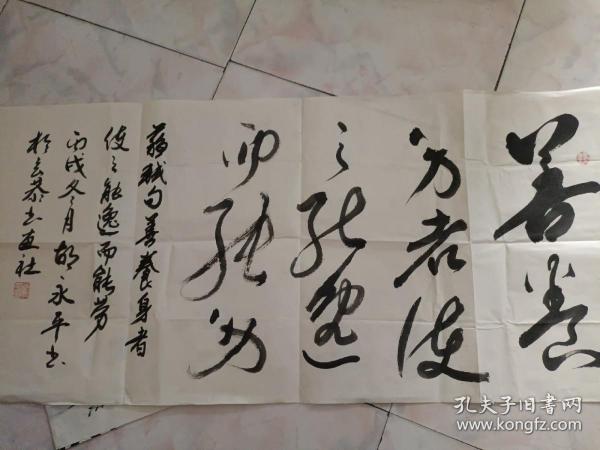 善養
身者使
之能逸
而能劳
蘇軾句善養身者
使之能逸而能劳
丙戌冬月胡永平书
书画社
孔夫子旧书网
www.kongfz.com